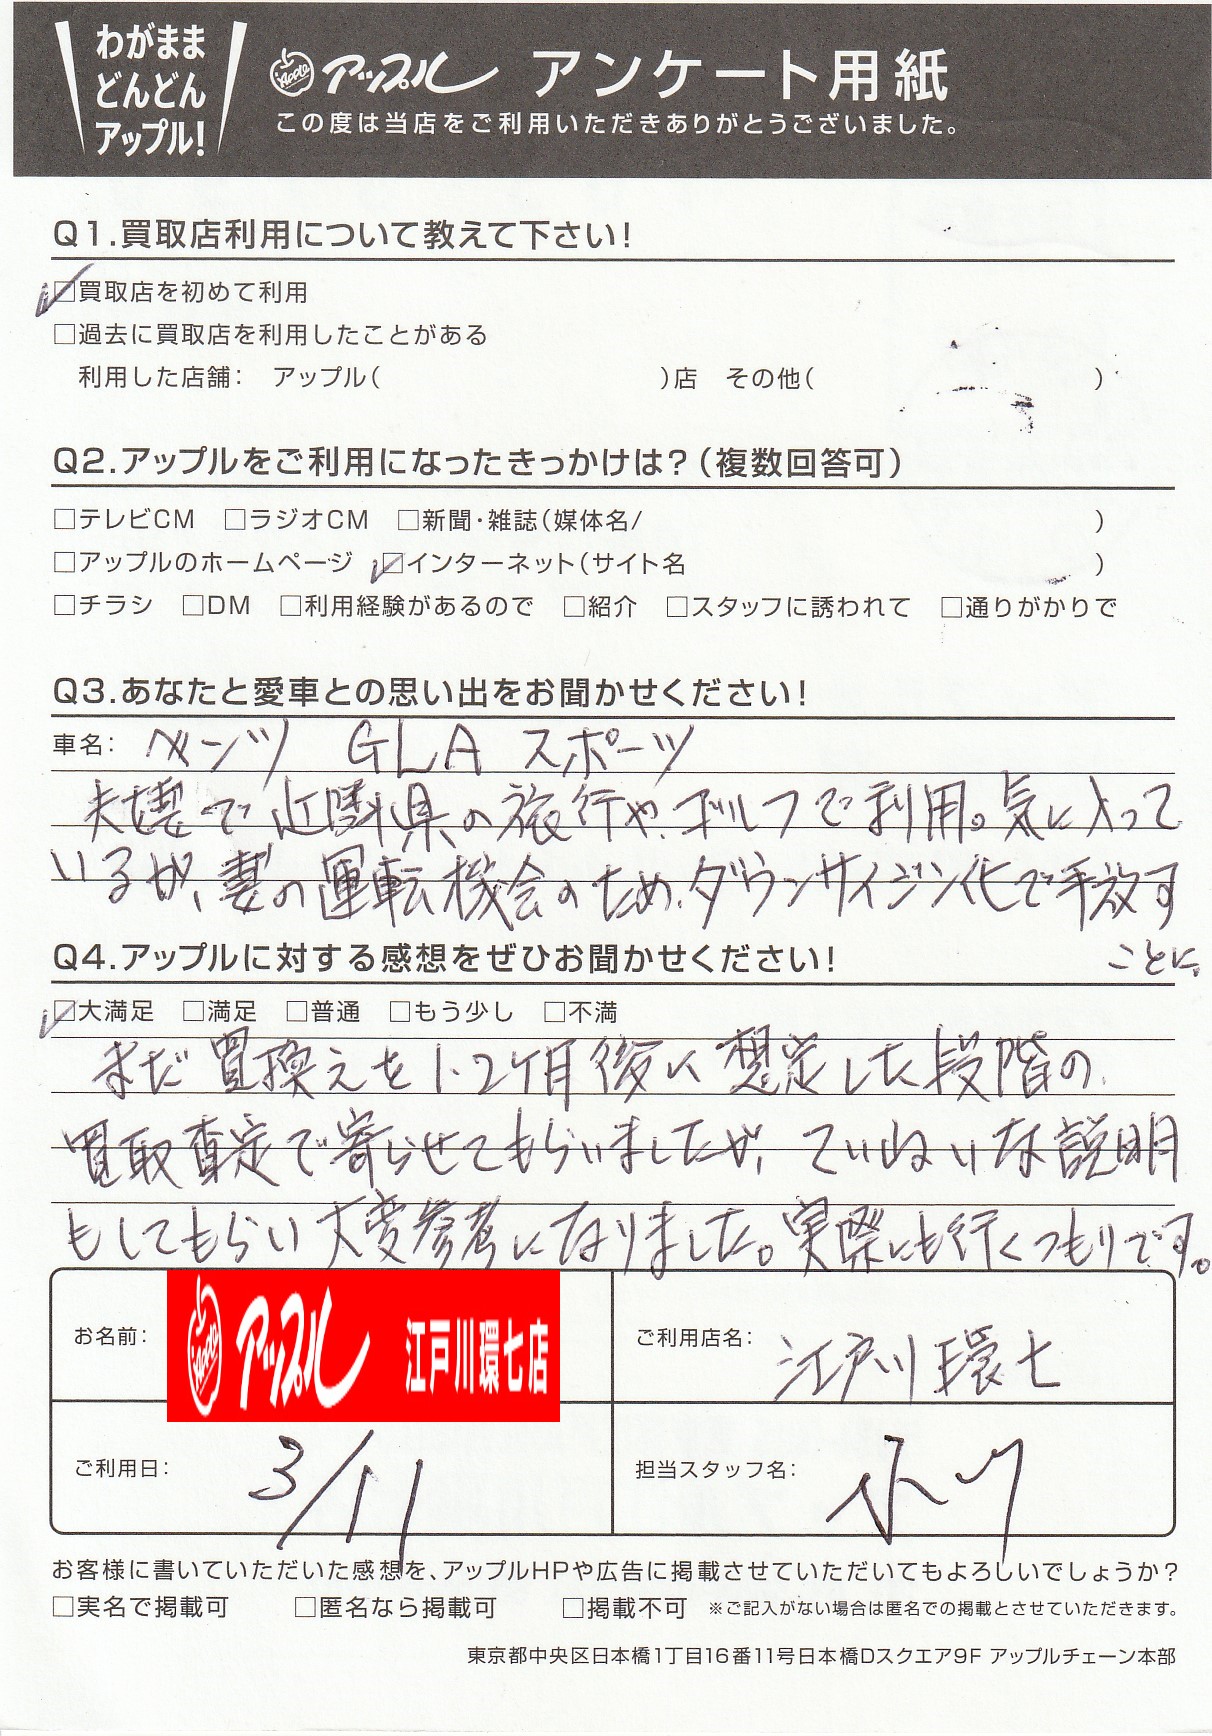 わがまま
どんどん
アップル!
Apple アップル アンケート用紙
この度は当店をご利用いただきありがとうございました。
Q1.買取店利用について教えて下さい!
☑買取店を初めて利用
□過去に買取店を利用したことがある
利用した店舗: アップル( )店 その他( )
Q2.アップルをご利用になったきっかけは?(複数回答可)
□テレビCM □ラジオCM □新聞・雑誌(媒体名/ )
□アップルのホームページ ☑インターネット(サイト名 )
□チラシ □DM □利用経験があるので □紹介 □スタッフに誘われて □通りがかりで
Q3.あなたと愛車との思い出をお聞かせください!
車名: ベンツ GLA スポーツ
夫婦で近隣県の旅行や、ゴルフで利用。気に入って
いるが、妻の運転機会のため、ダウンサイジン化で手放す
ことに。
Q4.アップルに対する感想をぜひお聞かせください!
☑大満足 □満足 □普通 □もう少し □不満
まだ買換えを1、2ヶ月後に想定した段階の
買取査定で寄らせてもらいましたが、ていねいな説明
もしてもらい大変参考になりました。実際にも行くつもりです。
お名前: Apple アップル 江戸川環七店
ご利用店名: 江戸川環七
ご利用日: 3/11
担当スタッフ名: 小川
お客様に書いていただいた感想を、アップルHPや広告に掲載させていただいてもよろしいでしょうか?
□実名で掲載可 □匿名なら掲載可 □掲載不可 ※ご記入がない場合は匿名での掲載とさせていただきます。
東京都中央区日本橋1丁目16番11号日本橋Dスクエア9F アップルチェーン本部